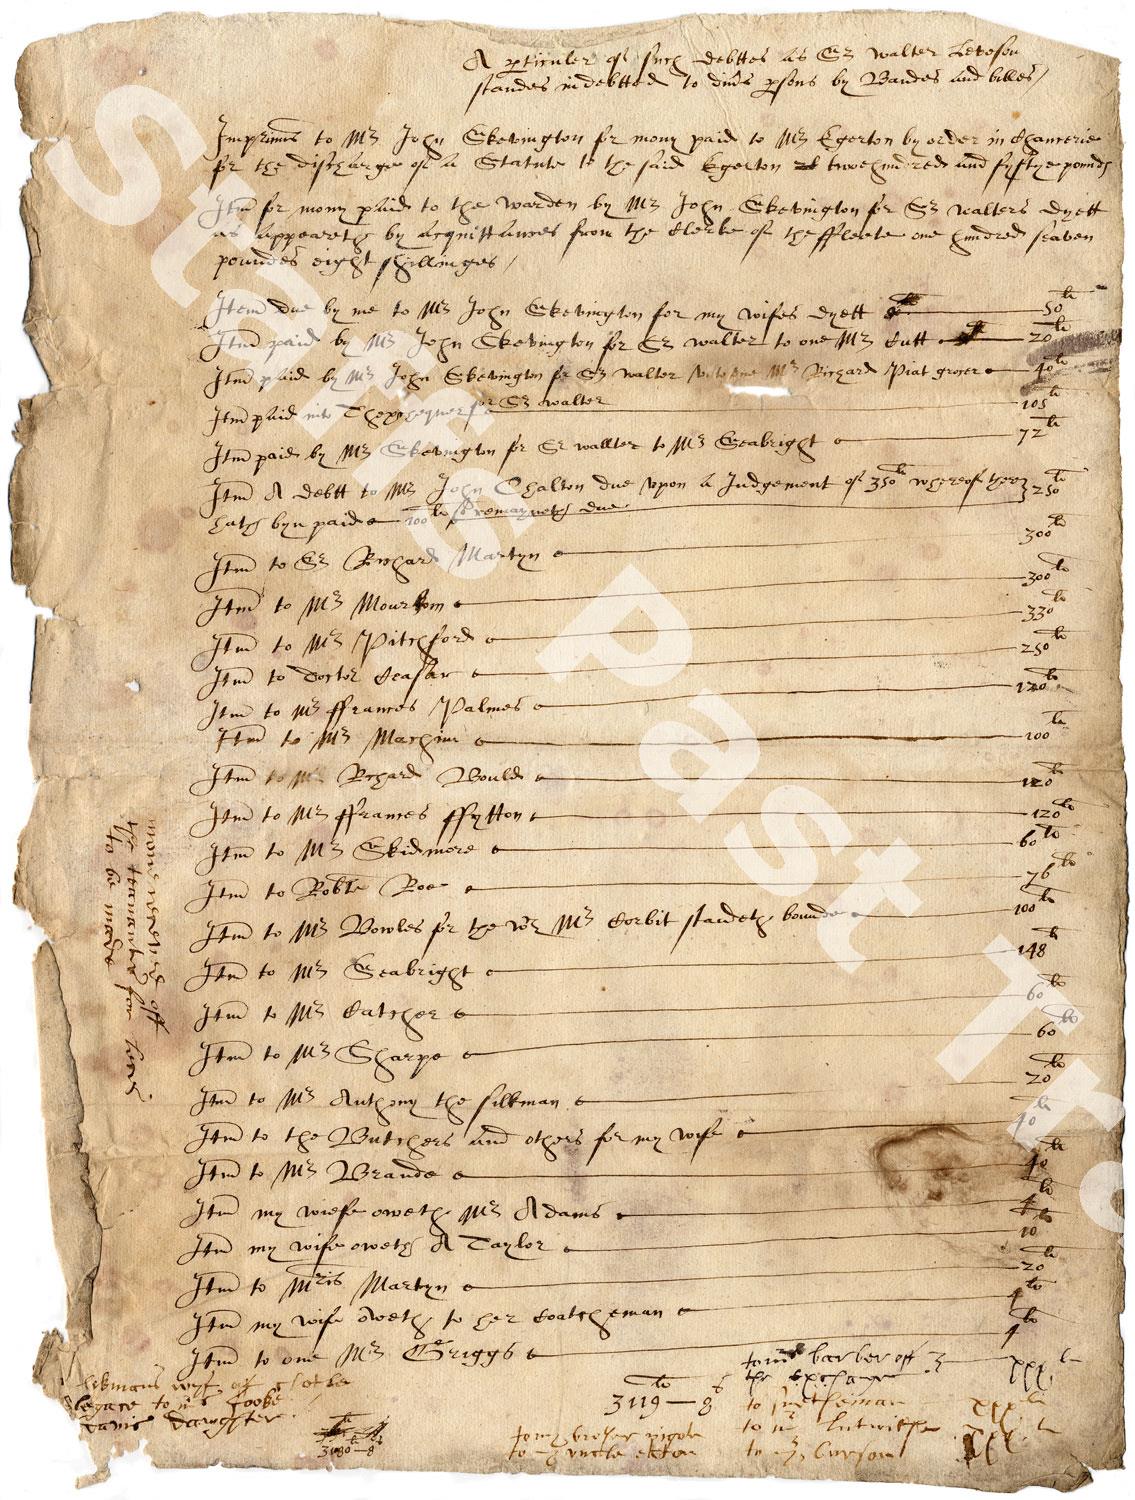 A perticuler of such debttes as Sr Walter Leveson
standes indebtted to divrs psons by Bandes and billes /
Imprimis to Mr John Skevington for mony paid to Mr Egerton by order in Chancerie
for the discharge of a Statute to the said Egerton twoehundred and fyftye pounds
Itm for mony paid to the warden by Mr John Skevington for Sr Walters dyett
as appeareth by acquittances from the Clerke of the ffleete one hundred seaven
poundes eight shillinges /
Item due by me to Mr John Skevington for my wifes dyett 50li
Itm paid by Mr John Skevington for Sr Walter to one Mr Cutt 20li
Itm paid by Mr John Skevington for Sr Walter unto one Mr Richard Piat grocer 40li
Itm paid into Thexchequer for Sr Walter 105li
Itm paid by Mr Skevington for Sr Wallter to Mr Seabright 72li
Itm A debtt to Mr John Chalton due upon a Judgement of 350li whereof there 250li
hath byn paide 100li so remayneth due
Itm to Sr Richard Martyn 300li
Itm to Mr 300li
Itm to Mr Pitchford 330li
Itm to Doctor Ceasar 250li
Itm to Mr ffrances Palmes 120li
Itm to Mr Machin 100li
Itm to Mr Richard Bould 120li
Itm to Mr ffrances ffytton 120li
Itm to Mr Skidmore 60li
Itm to Robte Roe 76li
Itm to Mr Bowles for the wch Mr Corbit standeth bounde 100li
Itm to Mr Seabright 148li
Itm to Mr Catcher 60li
Itm to Mr Sharpe 60li
Itm to Mr Anthony the silkman 20li
Itm to the Butchers and others for my wife 40li
Itm to Mr Brande 40li
Itm my wiefe oweth Mr Adams 4li
Itm my wife oweth A Taylor 10li
Itm to Mris Martyn 20li
Itm my wife oweth to her Coatcheman 4li
Itm to one Mr Griggs 4li
to barber off xxxli
the exchange
3119li — 8s
to xxli
to mr xxli
to mr xxli
to my brother
to my uncle
wyf of
legace to
dawghter
3180li — 8s
mony off
the tennantes for
to be made
Staffs Past T